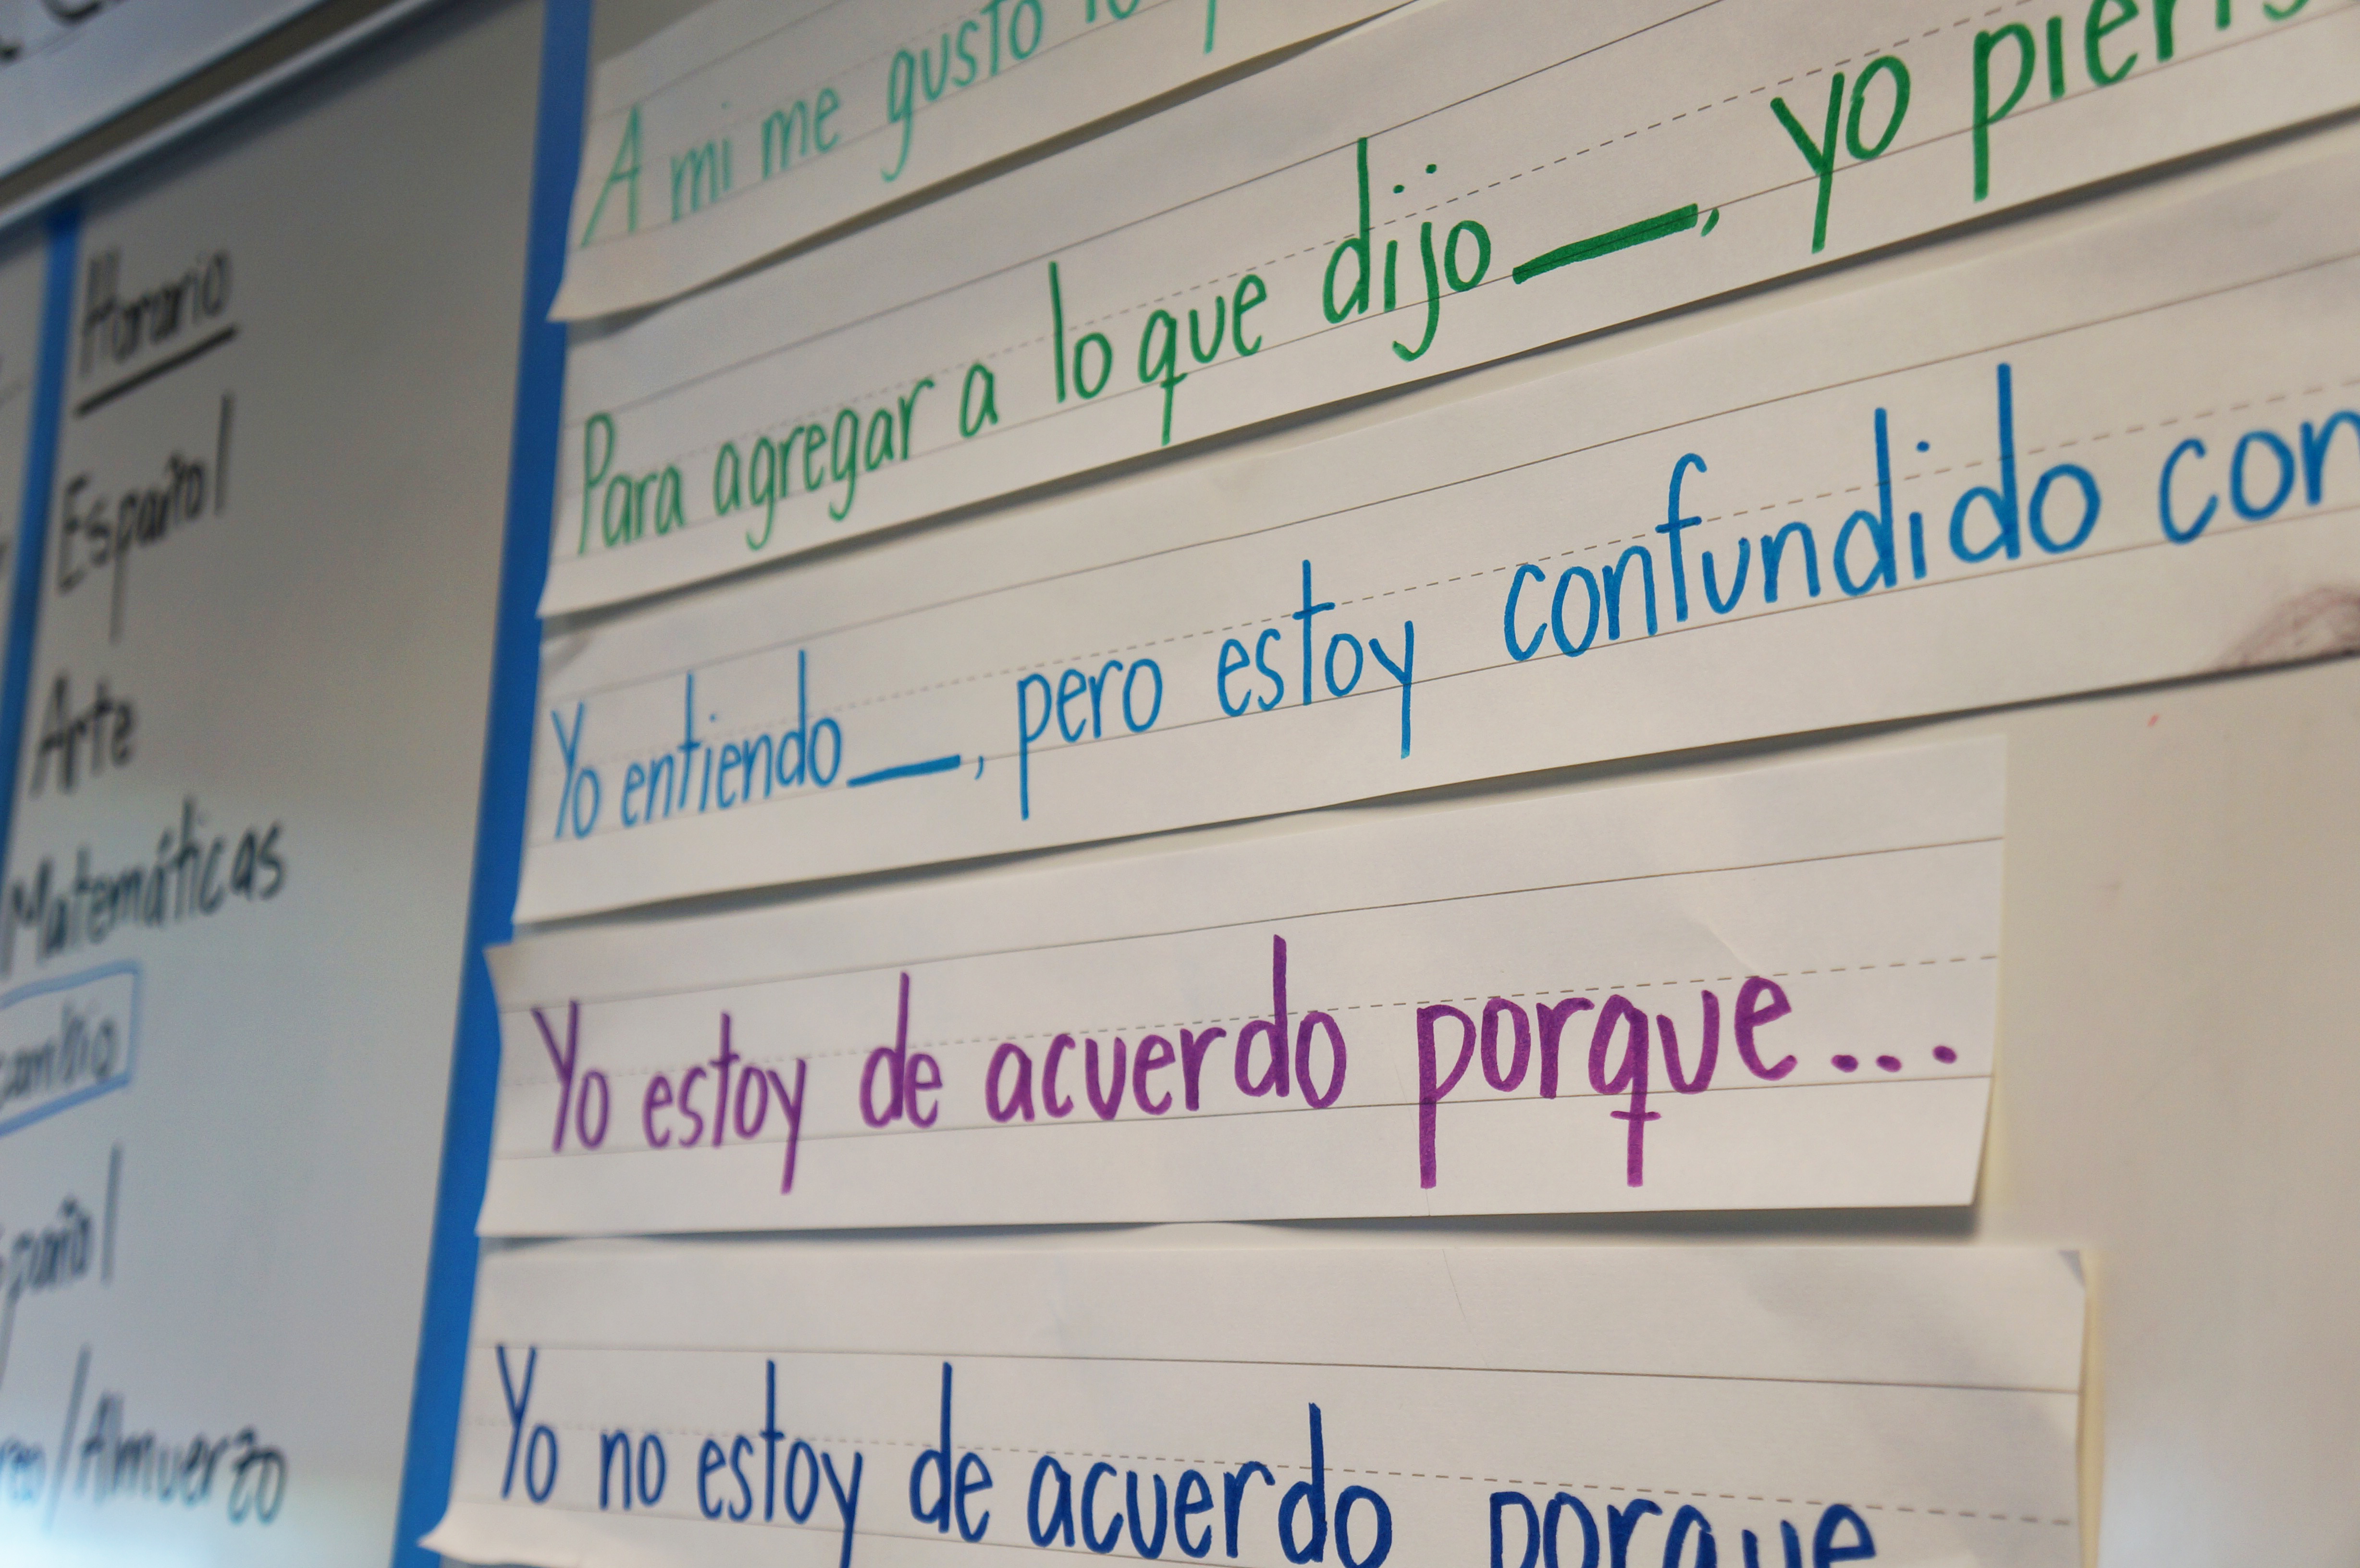 Horario
Español
Arte
Matemáticas
Almuerzo
A mi me gusto
Para agregar a lo que dijo __, yo
Yo entiendo __, pero estoy confundido con
Yo estoy de acuerdo porque...
Yo no estoy de acuerdo porque